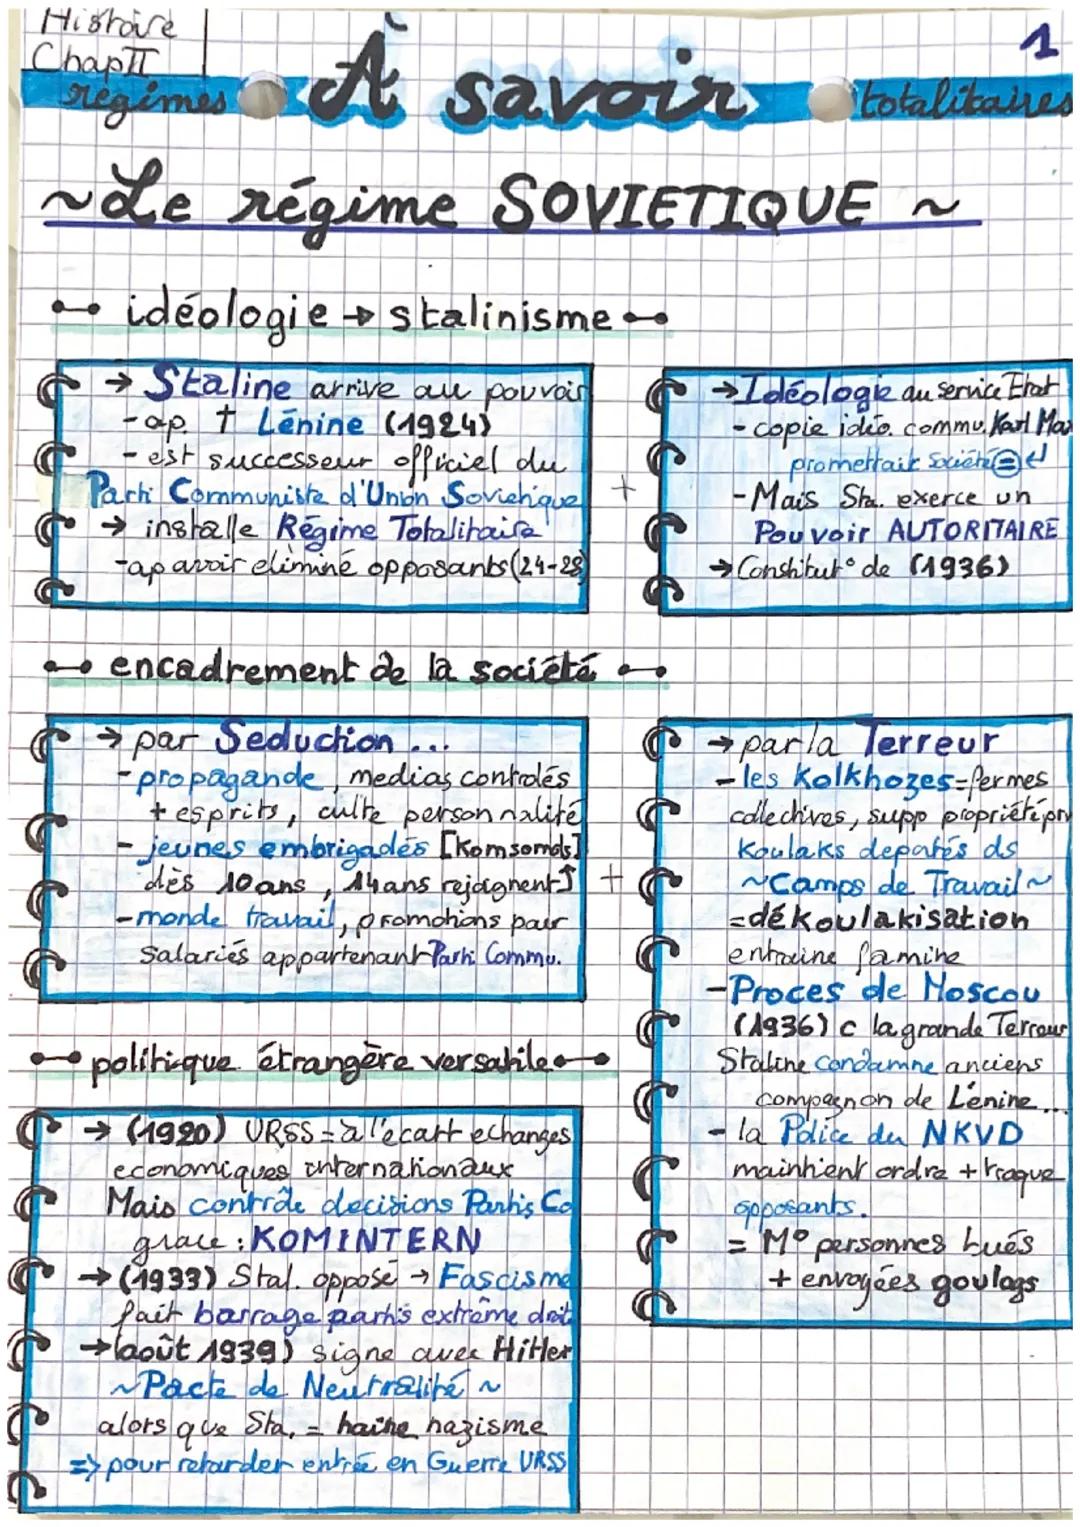 Histoire
Chap II
régimes
À savoir
totalitaires
1
~ Le régime SOVIETIQUE ~
idéologie → stalinisme
→ Staline arrive au pouvoir
- ap. † Lénine (1924)
- est successeur officiel du
Parti Communiste d'Union Soviétique
→ installe Régime Totalitaire
- ap avoir éliminé opposants (24-28)
+
→ Idéologie au service Etat
- copie idéo. commu. Karl Max
promettait société =
- Mais Sta. exerce un
Pouvoir AUTORITAIRE
→ Constitut° de (1936)
encadrement de la société
→ par Seduction ...
- propagande, medias controlés
+ esprits, culte personnalité
- jeunes embrigadés [Komsomols]
dès 10 ans, 14 ans rejoignent ↑
- monde travail, promotions pour
salariés appartenant Parti Commu.
+
→ par la Terreur
- les Kolkhozes = fermes
collectives, supp propriété priv
Koulaks deportés ds
~ Camps de Travail ~
= dékoulakisation
entraine famine
- Proces de Moscou
(1936) c la grande Terreur
Staline condamne anciens
compagnon de Lénine ...
- la Police du NKVD
maintient ordre + traque
opposants.
= M° personnes tués
+ envoyées goulags
politique étrangère versatile
→ (1920) URSS = à l'écart echanges
economiques internationaux
Mais contrôle decisions Partis Co
grace : KOMINTERN
→ (1933) Stal. opposé → Fascisme
fait barrage partis extrême droit
→ (août 1939) signe avec Hitler
~ Pacte de Neutralité ~
alors que Sta. = haine nazisme
=> pour retarder entrée en Guerre URSS